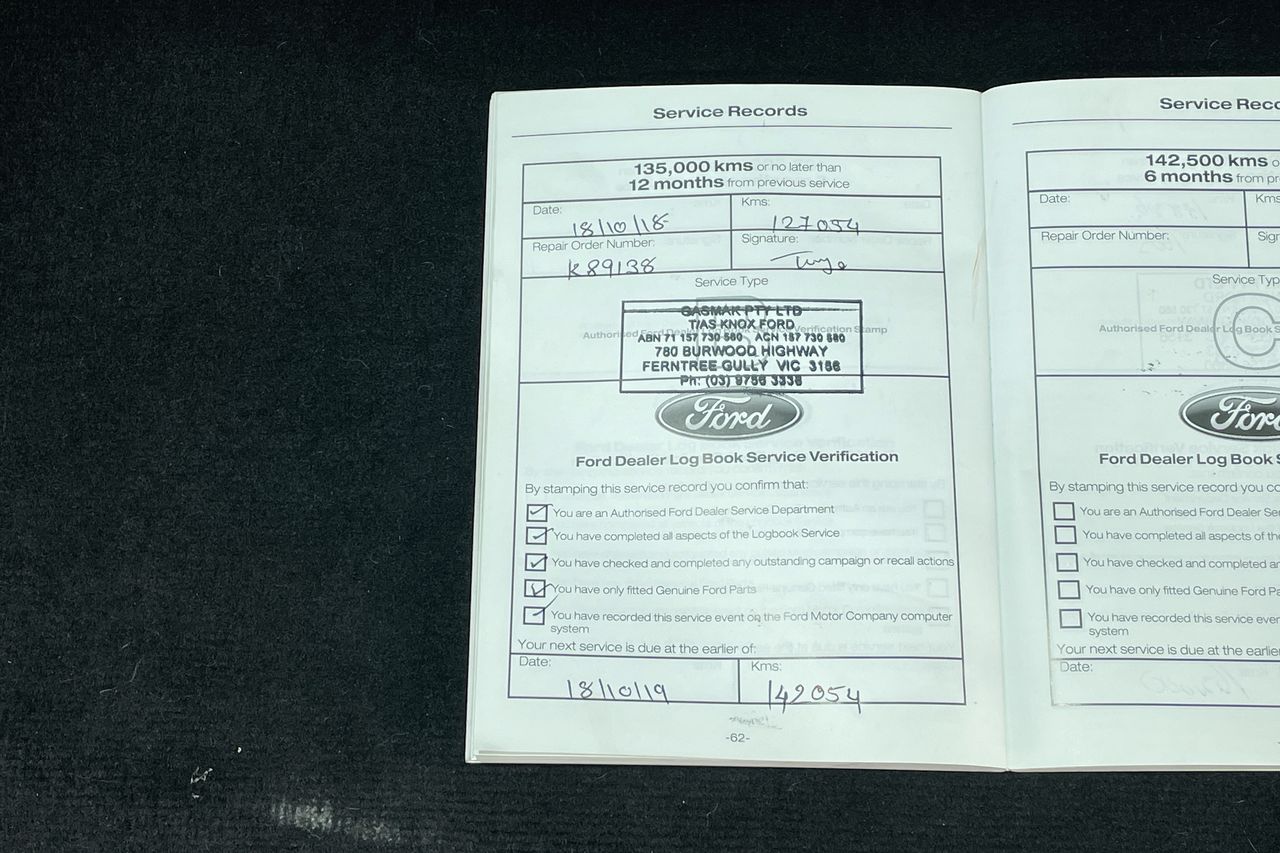 Service Records
135,000 kms or no later than
12 months from previous service
Date:
18/10/18
Kms:
127054
Repair Order Number:
K89138
Signature:
Service Type
B
GASMAK PTY LTD
T/AS KNOX FORD
Authorised Ford Dealer Log Book Service Verification Stamp
ABN 71 157 730 580 ACN 157 730 580
780 BURWOOD HIGHWAY
FERNTREE GULLY VIC 3156
Ph: (03) 9756 3338
Ford
Ford Dealer Log Book Service Verification
By stamping this service record you confirm that:
You are an Authorised Ford Dealer Service Department
You have completed all aspects of the Logbook Service
You have checked and completed any outstanding campaign or recall actions
You have only fitted Genuine Ford Parts
You have recorded this service event on the Ford Motor Company computer
system
Your next service is due at the earlier of:
Date:
18/10/19
Kms:
142054
-62-
Service Reco
142,500 kms o
6 months from pr
Date:
Kms
Repair Order Number:
Sign
Service Typ
Authorised Ford Dealer Log Book S
C
Ford
Ford Dealer Log Book S
By stamping this service record you co
You are an Authorised Ford Dealer Ser
You have completed all aspects of the
You have checked and completed an
You have only fitted Genuine Ford Pa
You have recorded this service even
system
Your next service is due at the earlie
Date: